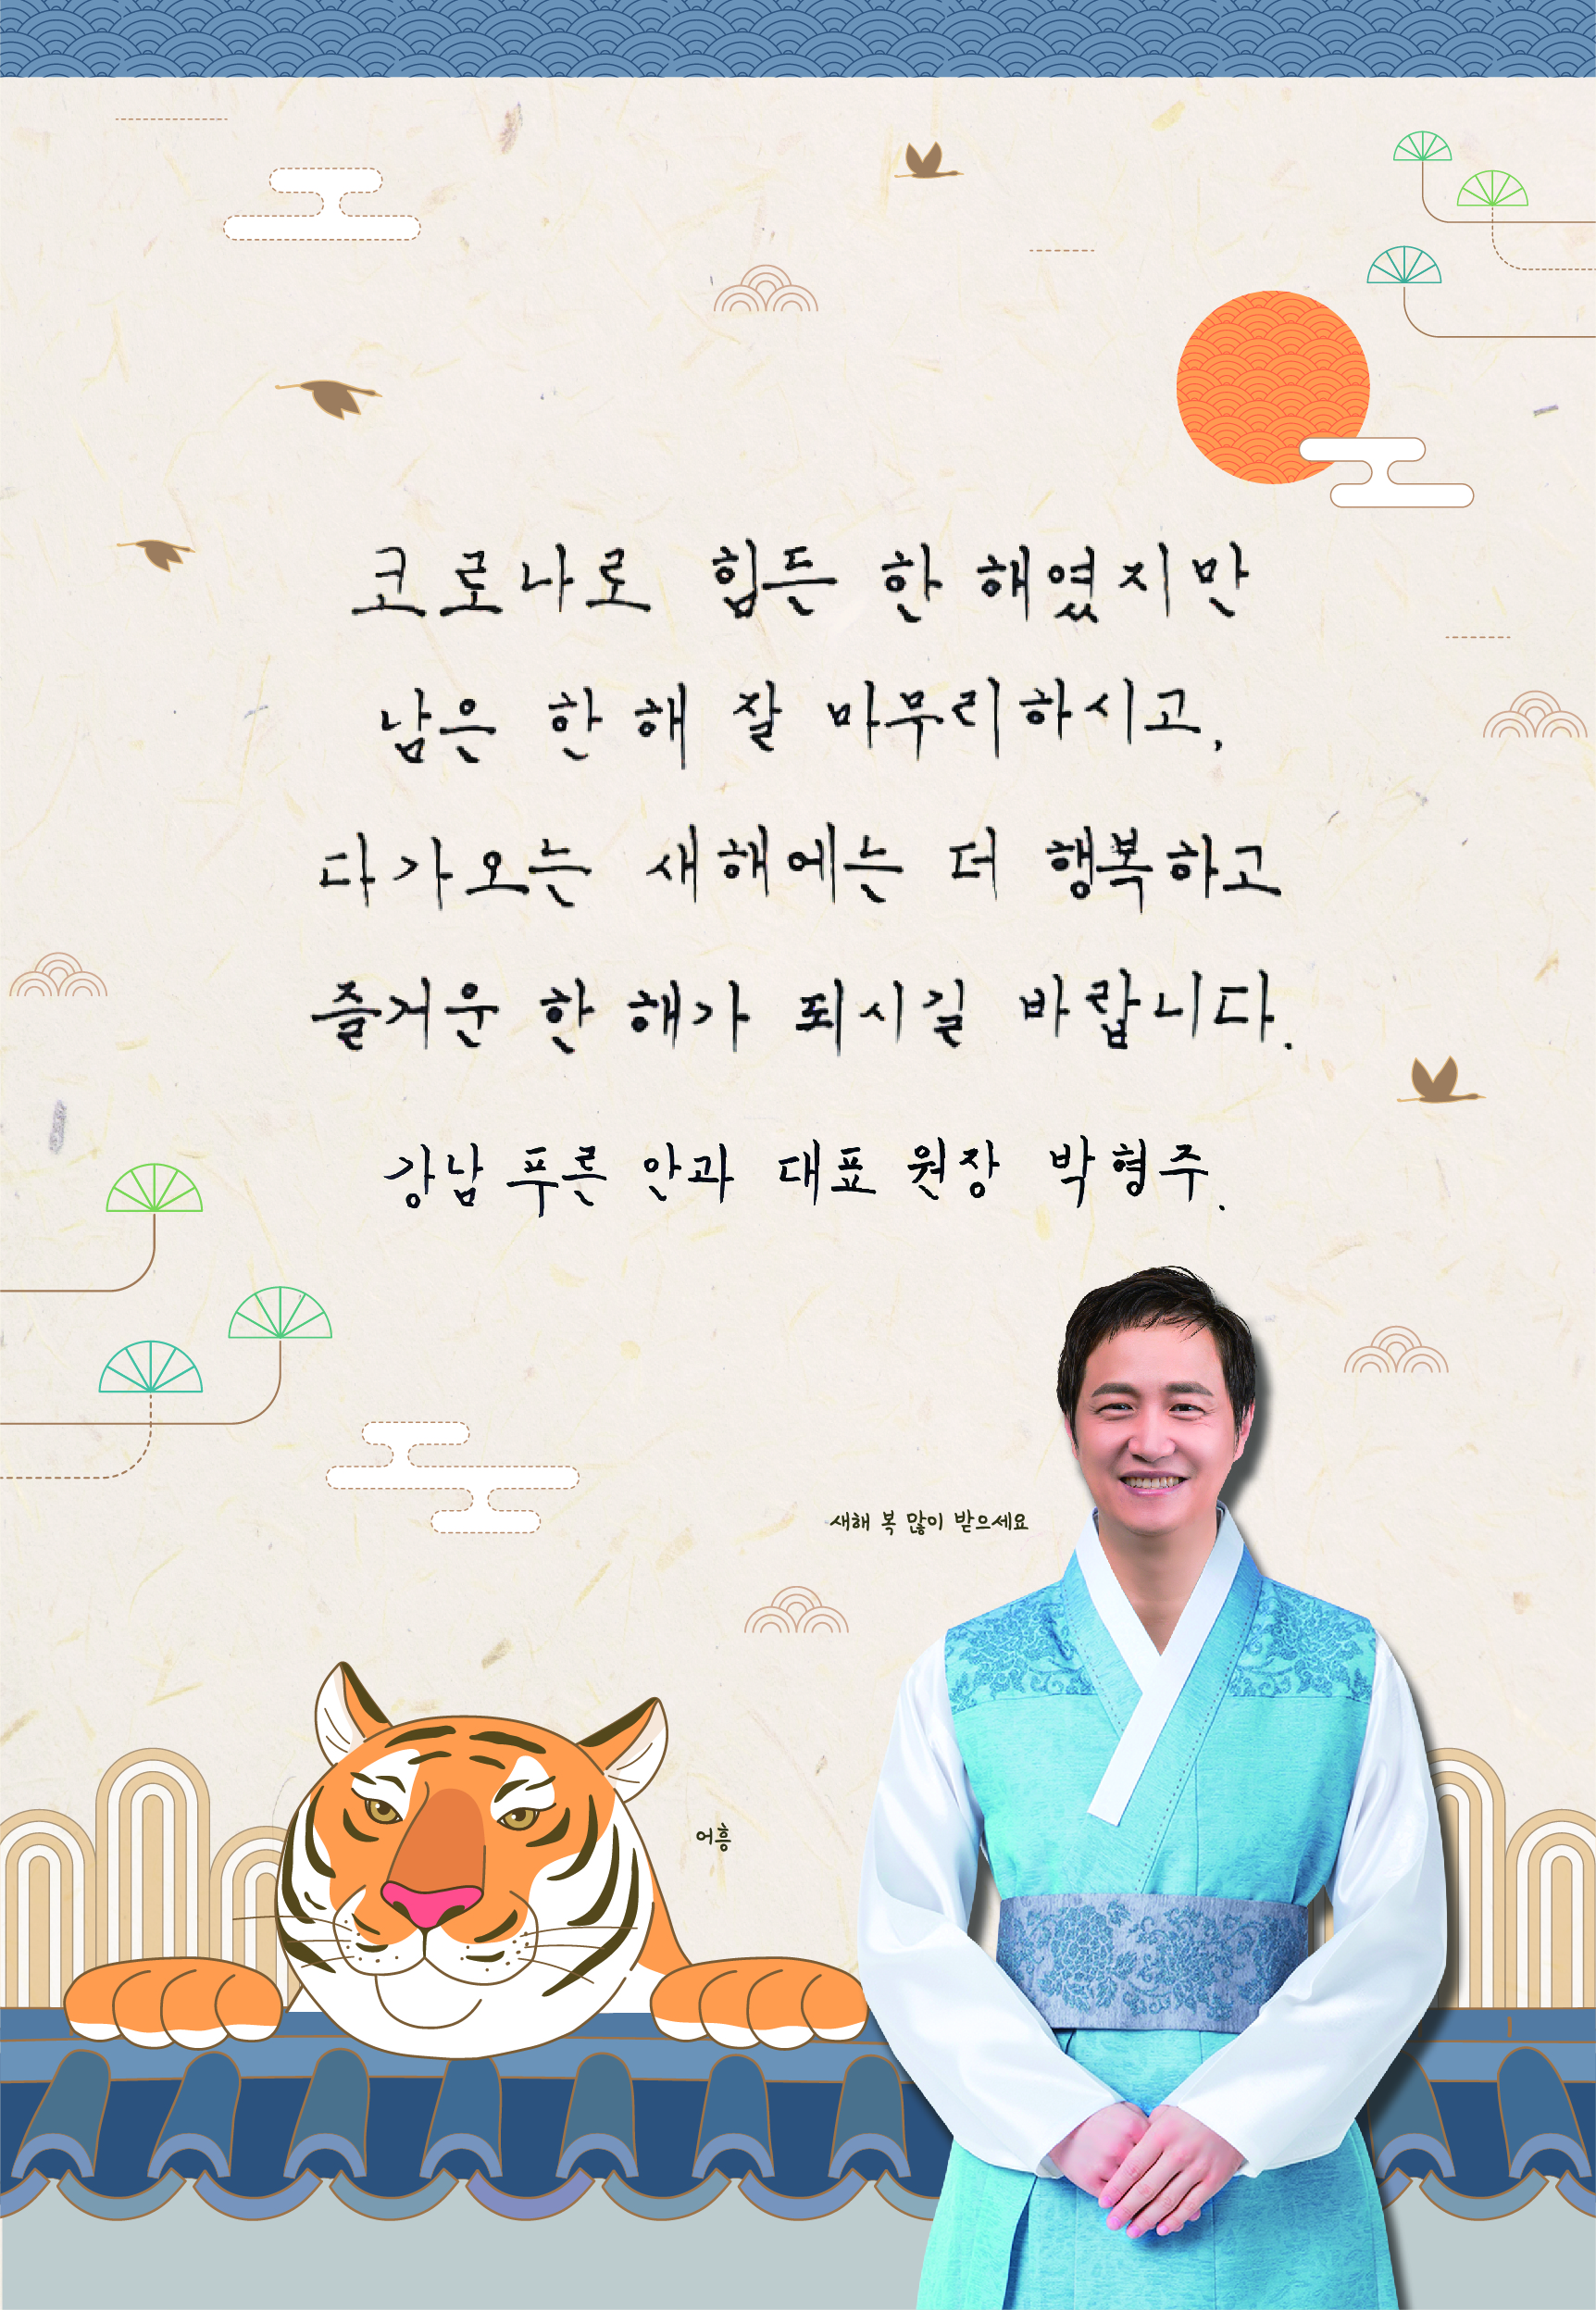 코로나로 힘든 한 해였지만
남은 한 해 잘 마무리하시고,
다가오는 새해에는 더 행복하고
즐거운 한 해가 되시길 바랍니다.
강남 푸른 안과 대표 원장 박형주.
새해 복 많이 받으세요
어흥